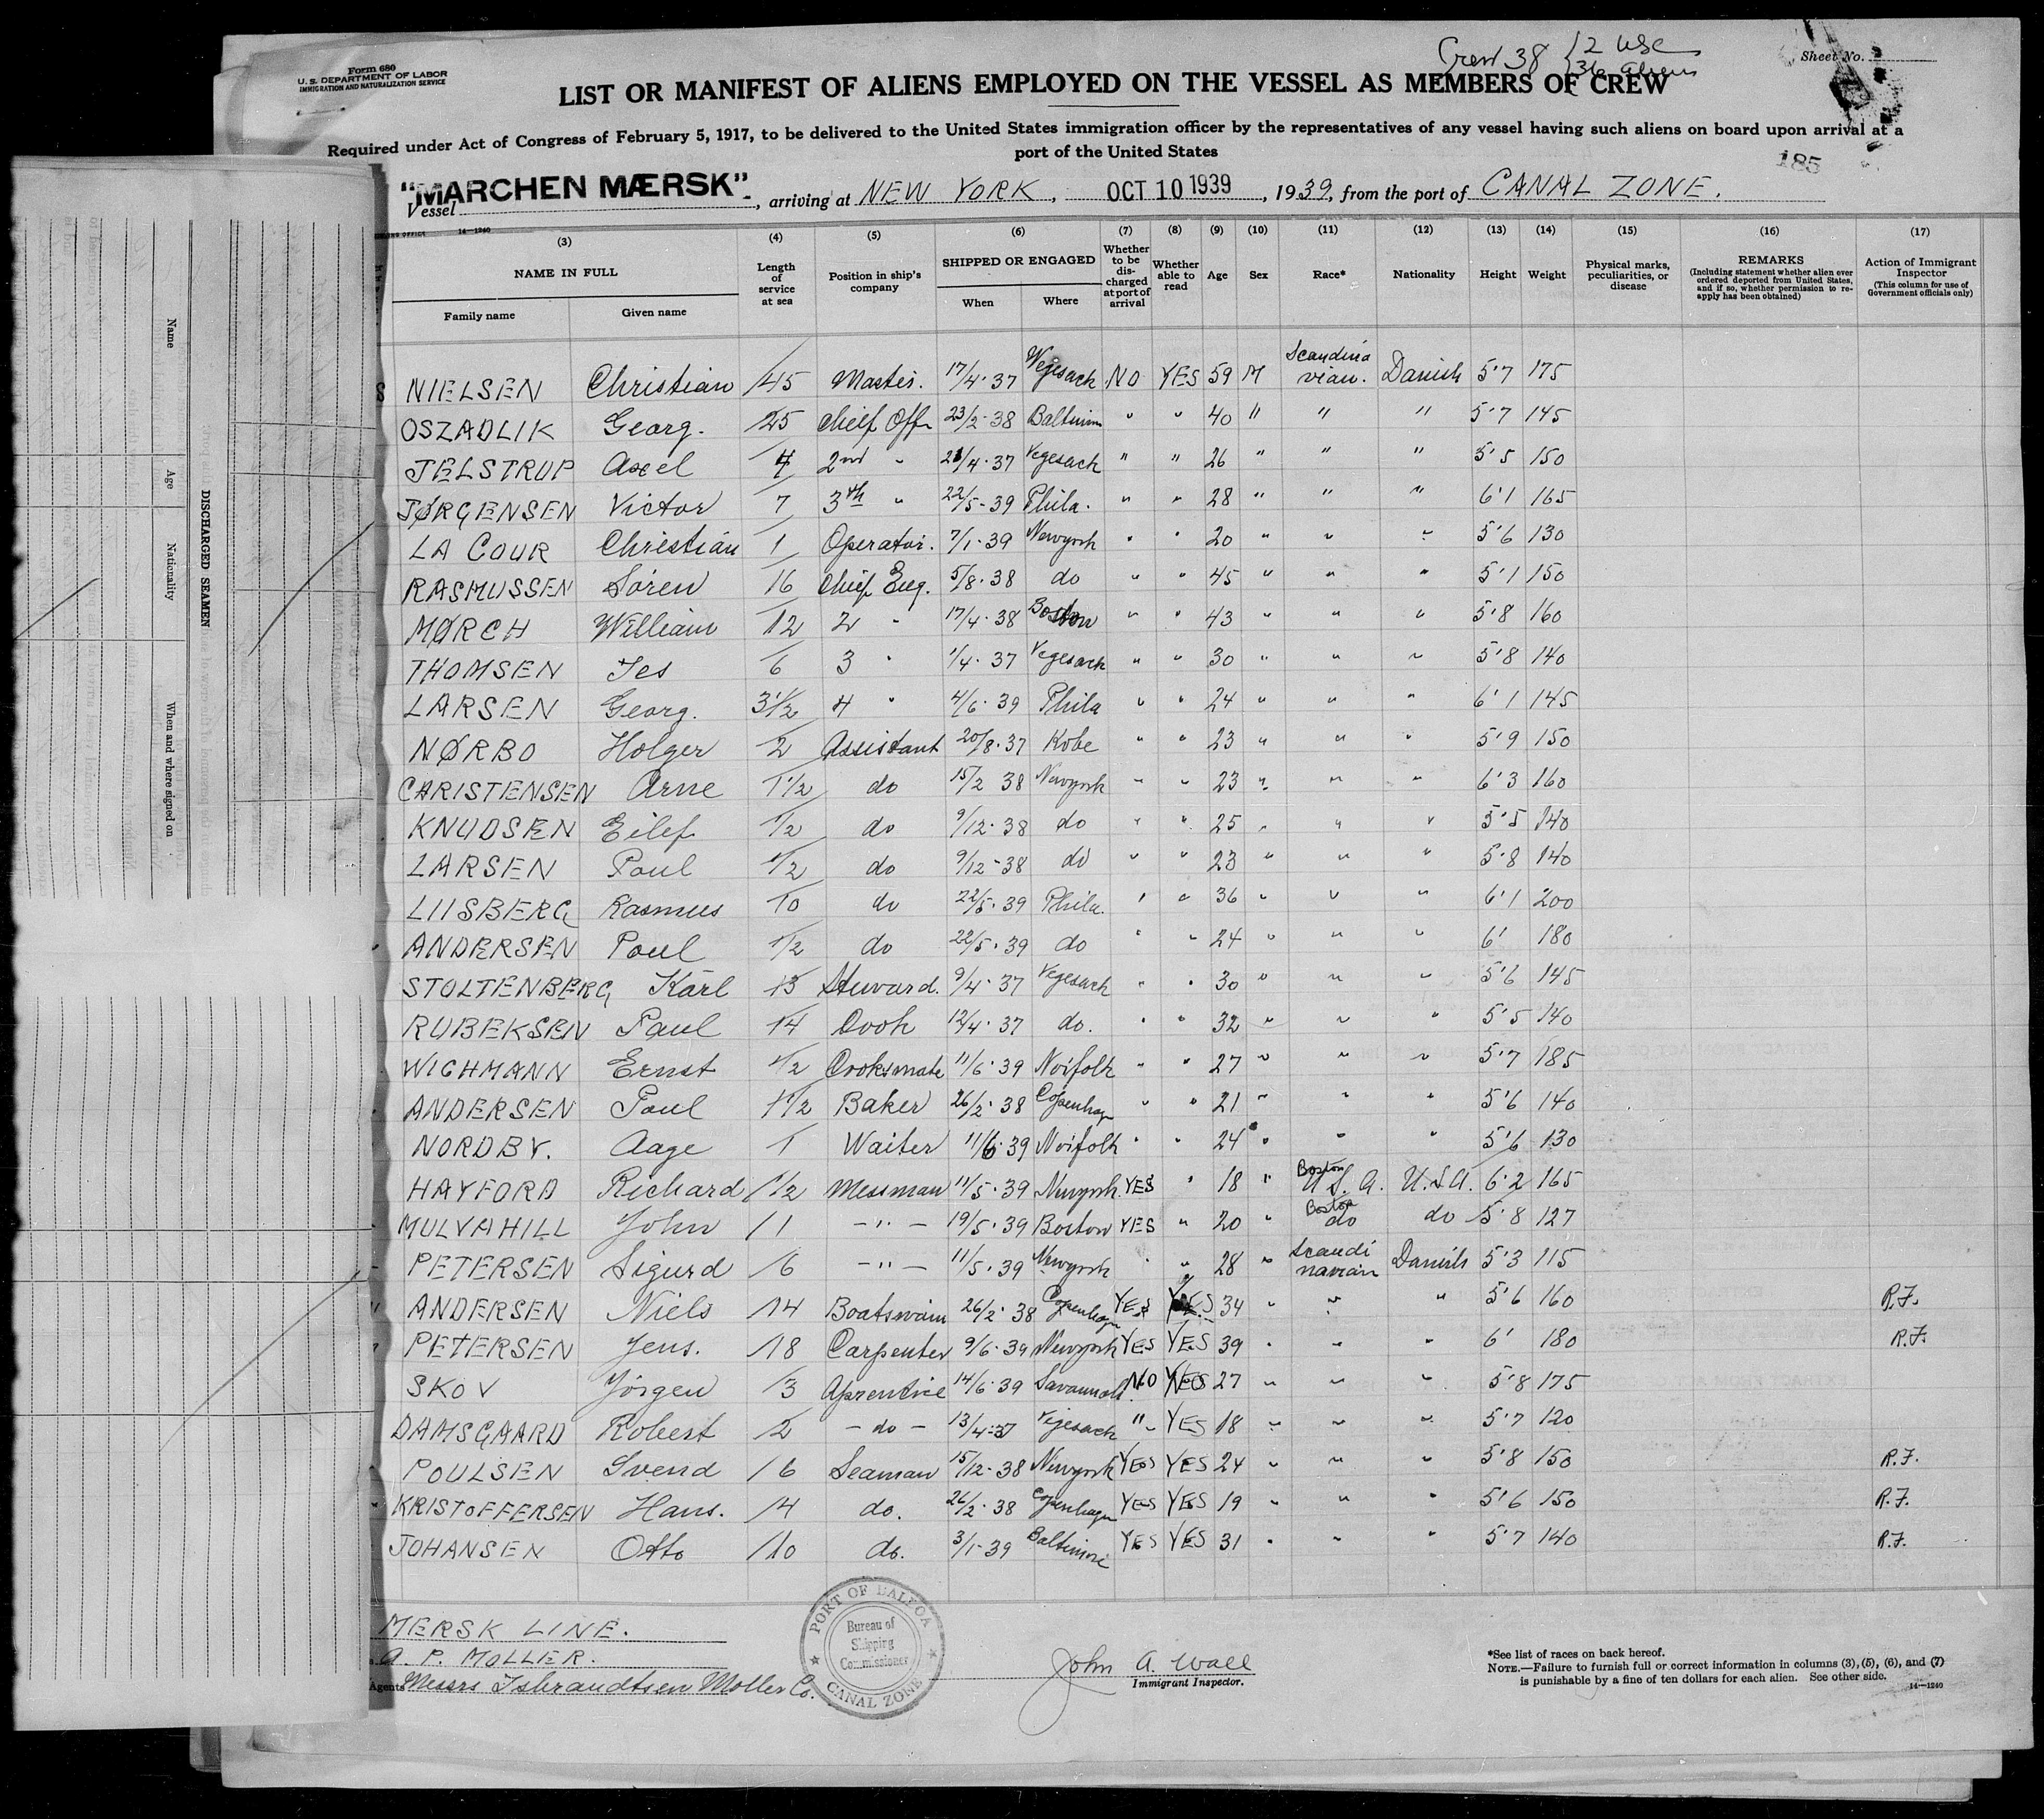 Form 680
U. S. DEPARTMENT OF LABOR
IMMIGRATION AND NATURALIZATION SERVICE
Crew 38 { 2 USC
36 aliens
Sheet No.
LIST OR MANIFEST OF ALIENS EMPLOYED ON THE VESSEL AS MEMBERS OF CREW
Required under Act of Congress of February 5, 1917, to be delivered to the United States immigration officer by the representatives of any vessel having such aliens on board upon arrival at a
port of the United States
185
Vessel "MARCHEN MÆRSK", arriving at NEW YORK, OCT 10 1939, 1939, from the port of CANAL ZONE.
14—1240
(3) (4) (5) (6) (7) (8) (9) (10) (11) (12) (13) (14) (15) (16) (17)
NAME IN FULL
Family name Given name
Length of service at sea
Position in ship's company
SHIPPED OR ENGAGED
When Where
Whether to be discharged at port of arrival
Whether able to read
Age
Sex
Race*
Nationality
Height
Weight
Physical marks, peculiarities, or disease
REMARKS
(Including statement whether alien ever ordered deported from United States, and if so, whether permission to reapply has been obtained)
Action of Immigrant Inspector
(This column for use of Government officials only)
NIELSEN Christian 45 Master. 17/4·37 Vegesack NO YES 59 M Scandinavian. Danish 5'7 175
OSZADLIK Georg. 25 Chief Off 23/2·38 Baltimm " " 40 " " " 5'7 145
JELSTRUP Axel 4 2nd " 21/4·37 Vegesack " " 26 " " " 5'5 150
JØRGENSEN Victor 7 3th " 22/5-39 Phila. " " 28 " " " 6'1 165
LA COUR Christian 1 Operator. 7/1·39 Newyork " " 20 " " " 5'6 130
RASMUSSEN Sören 16 Chief Eng. 5/8·38 do " " 45 " " " 5'1 150
MØRCH William 12 2 " 17/4·38 Boston " " 43 " " " 5'8 160
THOMSEN Jes 6 3 " 1/4·37 Vegesack " " 30 " " " 5'8 140
LARSEN Georg. 3½ 4 " 4/6·39 Phila " " 24 " " " 6'1 145
NØRBO Holger 2 Assistant 20/8·37 Kobe " " 23 " " " 5'9 150
CHRISTENSEN Arne 1½ do 15/2 38 Newyork " " 23 " " " 6'3 160
KNUDSEN Eilef 1/2 do 9/12·38 do " " 25 " " " 5'5 140
LARSEN Poul 1/2 do 9/12-38 do " " 23 " " " 5'8 140
LIISBERG Rasmus 10 do 22/5·39 Phila. " " 36 " " " 6'1 200
ANDERSEN Poul 1/2 do 22/5·39 do " " 24 " " " 6' 180
STOLTENBERG Karl 13 Steward. 9/4·37 Vegesack " " 30 " " " 5'6 145
RUBEKSEN Paul 14 Cook 12/4·37 do. " " 32 " " " 5'5 140
WICHMANN Ernst 1/2 Cooksmate 11/6·39 Norfolk " " 27 " " " 5'7 185
ANDERSEN Poul 1½ Baker 26/2·38 Copenhagen " " 21 " " " 5'6 140
NORDBY. Aage 1 Waiter 11/6·39 Norfolk " " 24 " " " 5'6 130
HAYFORD Richard 1/2 Messman 11/5·39 Newyork YES " 18 " Boston U.S.A. U.S.A. 6'2 165
MULVAHILL John 1 —"— 19/5·39 Boston YES " 20 " Boston do do 5'8 127
PETERSEN Sigurd 6 —"— 11/5·39 Newyork " " 28 " Scandinavian Danish 5'3 115
ANDERSEN Niels 14 Boatswain 26/2·38 Copenhagen YES YES 34 " " " 5'6 160 R.F.
PETERSEN Jens. 18 Carpenter 9/6·39 Newyork YES YES 39 " " " 6' 180 R.F.
SKOV Jörgen 3 Aprentice 14/6·39 Savannah NO YES 27 " " " 5'8 175
DAMSGAARD Robert 2 —do— 13/4-37 Vegesack " YES 18 " " " 5'7 120
POULSEN Svend 6 Seaman 15/12·38 Newyork YES YES 24 " " " 5'8 150 R.F.
KRISTOFFERSEN Hans. 4 do. 26/2·38 Copenhagen YES YES 19 " " " 5'6 150 R.F.
JOHANSEN Otto 10 do. 3/1-39 Baltimore YES YES 31 " " " 5'7 140 R.F.
MERSK LINE.
A. P. MOLLER.
Agents Messrs Isbrandtsen Moller Co.
PORT OF BALBOA
Bureau of
Shipping
Commissioner
CANAL ZONE
John A. Wall
Immigrant Inspector.
*See list of races on back hereof.
NOTE.—Failure to furnish full or correct information in columns (3), (5), (6), and (7)
is punishable by a fine of ten dollars for each alien. See other side.
14—1240
DISCHARGED SEAMEN
Name
Age
Nationality
When and where signed on